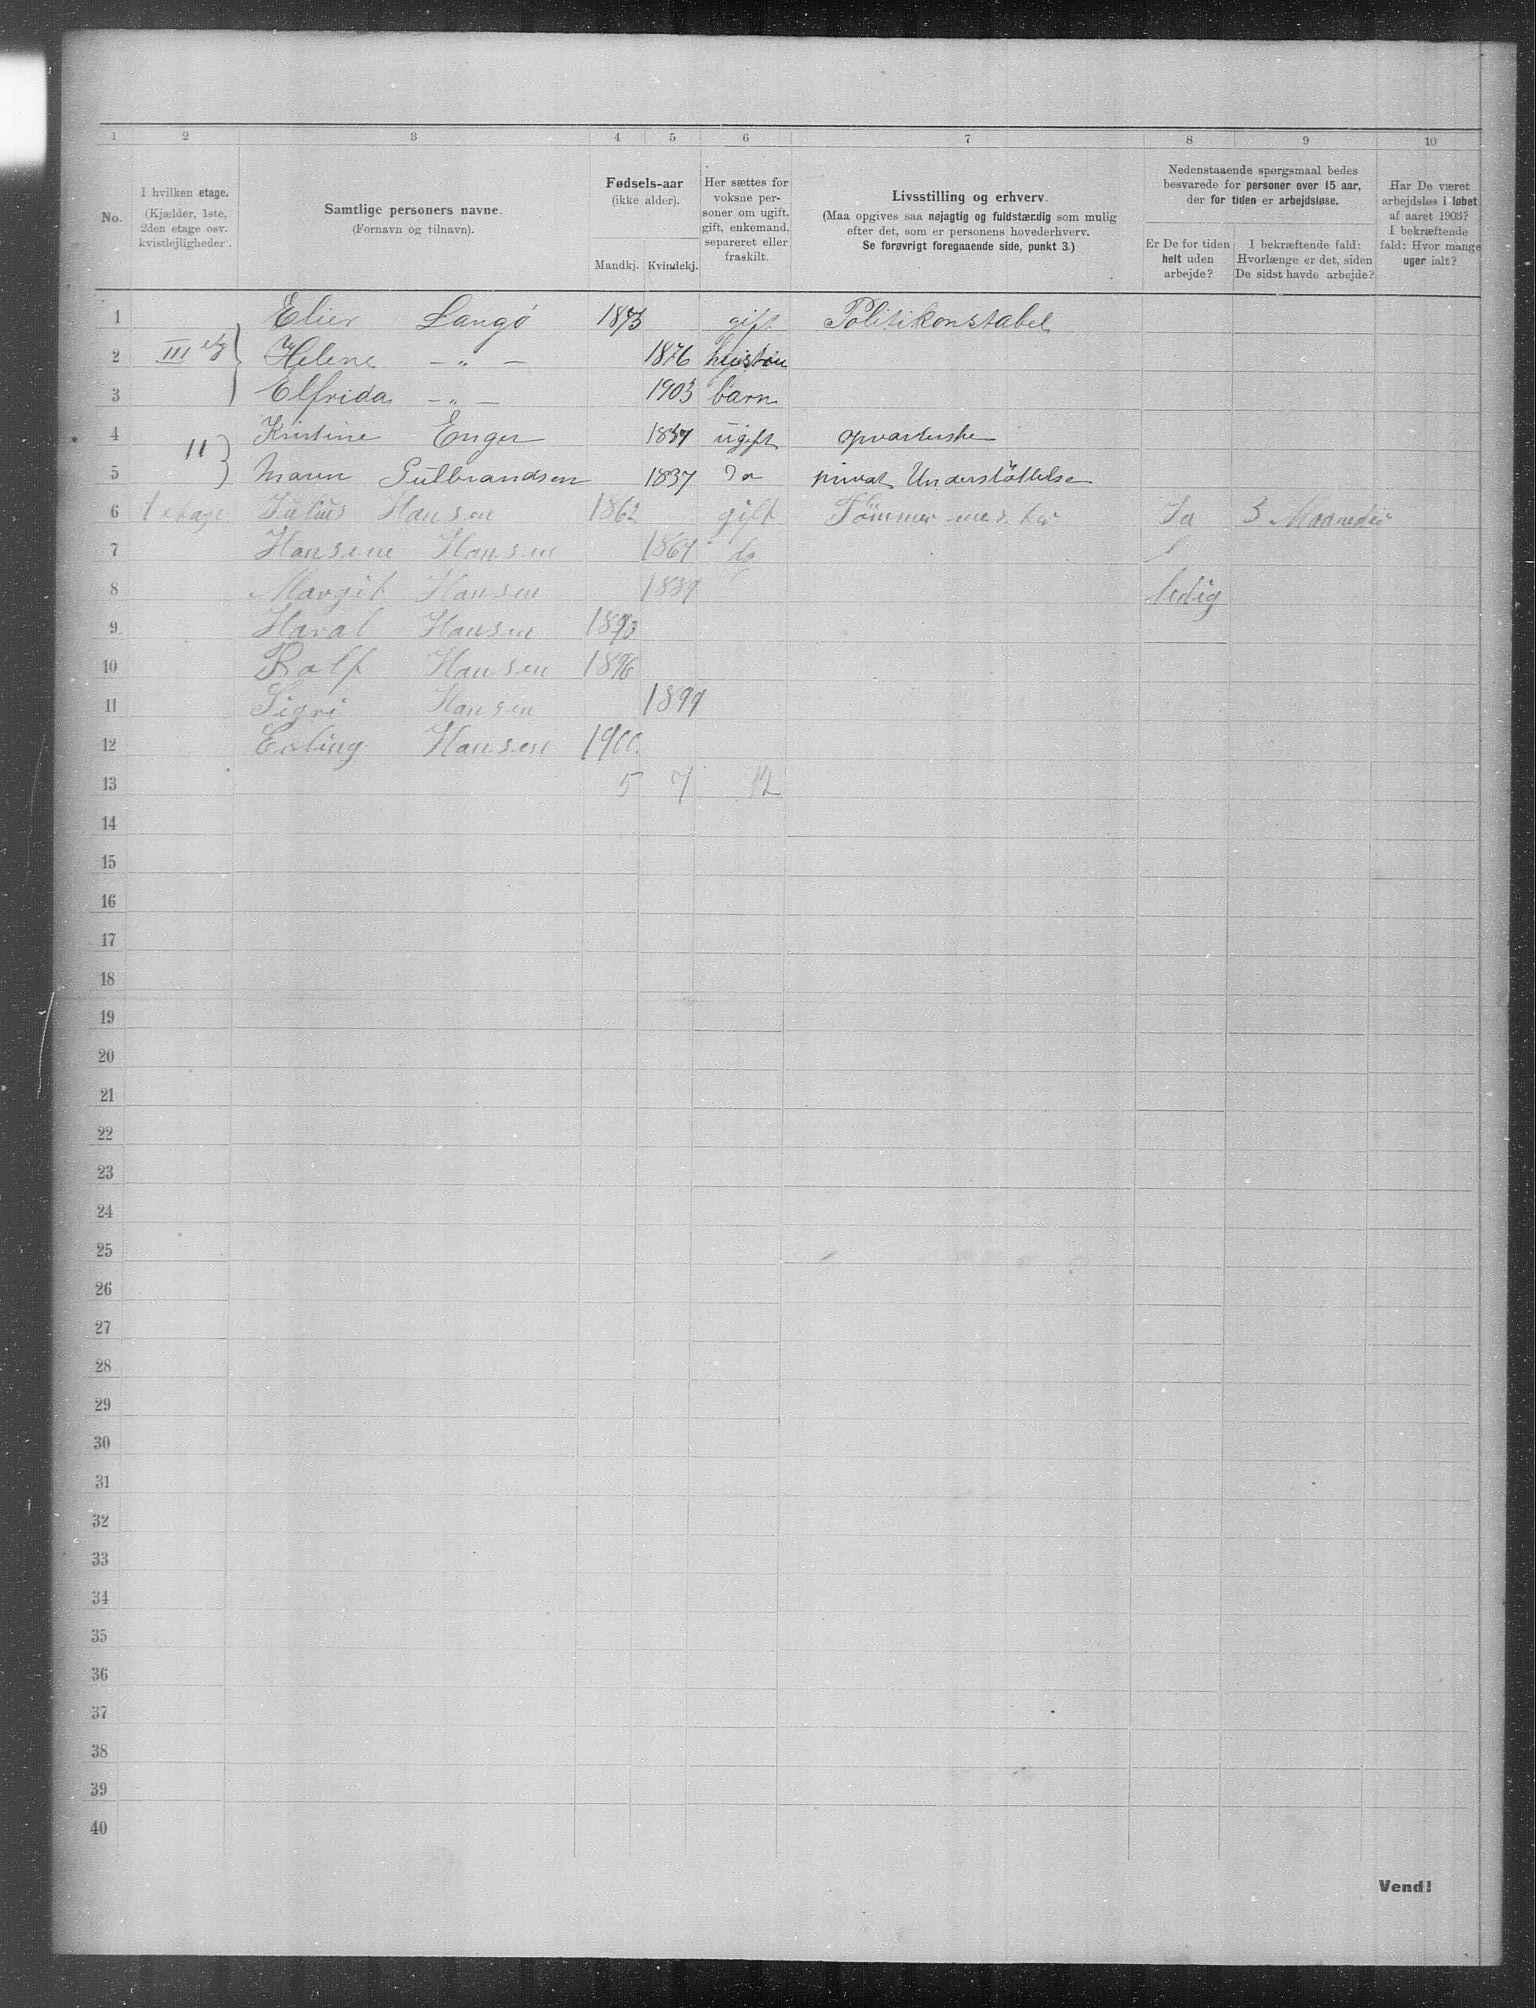 1 2 3 4 5 6 7 8 9 10
No.
I hvilken etage.
(Kjælder, 1ste,
2den etage osv.
kvistlejligheder).
Samtlige personers navne.
(Fornavn og tilnavn).
Fødsels-aar
(ikke alder).
Mandkj. Kvindekj.
Her sættes for
voksne per-
soner om ugift,
gift, enkemand,
separeret eller
fraskilt.
Livsstilling og erhverv.
(Maa opgives saa nøjagtig og fuldstændig som mulig
efter det, som er personens hovederhverv.
Se forøvrigt foregaaende side, punkt 3.)
Nedenstaaende spørgsmaal bedes
besvarede for personer over 15 aar,
der for tiden er arbejdsløse.
Er De for tiden
helt uden
arbejde?
I bekræftende fald:
Hvorlænge er det, siden
De sidst havde arbejde?
Har De været
arbejdsløs i løbet
af aaret 1903?
I bekræftende
fald: Hvor mange
uger ialt?
1 Elier Langö 1873 gift Politikonstabel
2 III etg Helene — „ — 1876 hustru
3 Elfrida — „ — 1903 barn
4 II Kristine Enger ugift opvarterske
5 Maren Gulbrandsen 1837 Do privat Understöttelse
6 1 etage Julius Hansen 1862 gift Tömmermester Ja 3 Maaneder
7 Hansene Hansen 1867 do
8 Margit Hansen 1889 ledig
9 Haral Hansen 1893
10 Rolf Hansen 1896
11 Sigri Hansen 1899
12 Erling Hansen 1900
13 5 7 12
14
15
16
17
18
19
20
21
22
23
24
25
26
27
28
29
30
31
32
33
34
35
36
37
38
39
40
Vend!